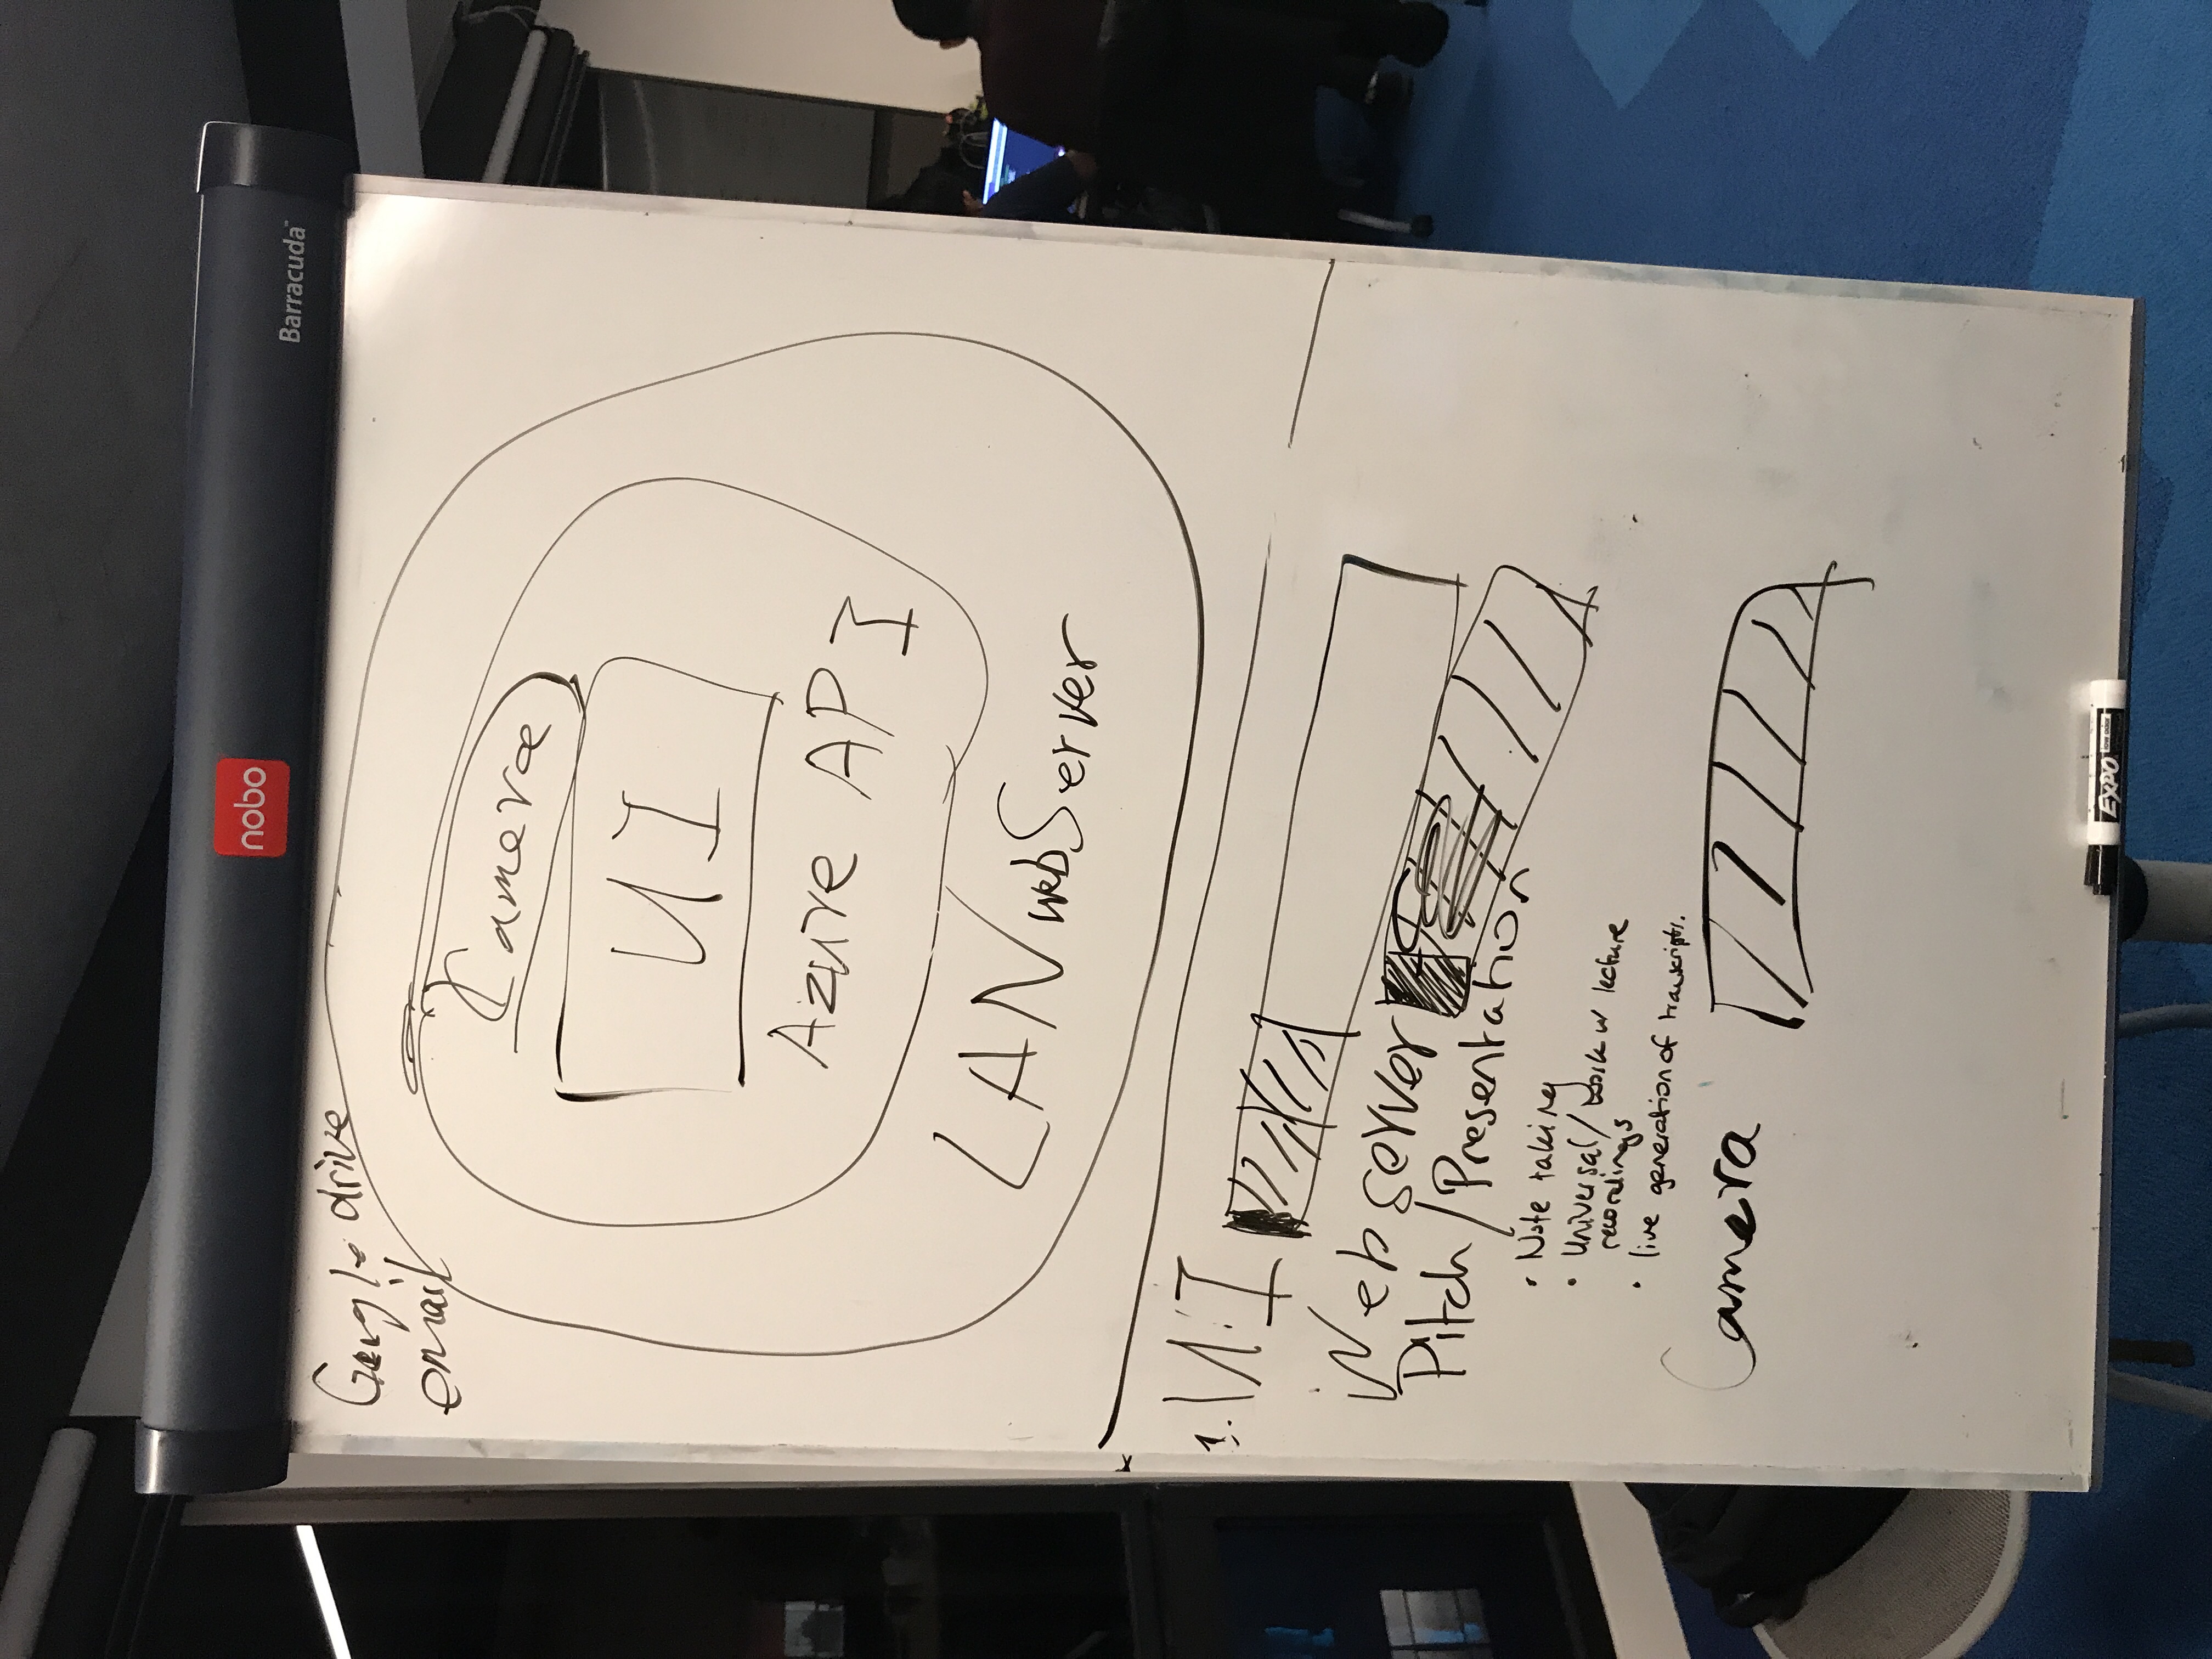 nobo
Barracuda™
Google drive
email
Camera
UI
Azure API
LAN webServer
1. UI
Webserver
Pitch/Presentation
• Note taking
• Universal/ work w lecture
recordings
• live generation of transcripts.
Camera
EXPO low odor